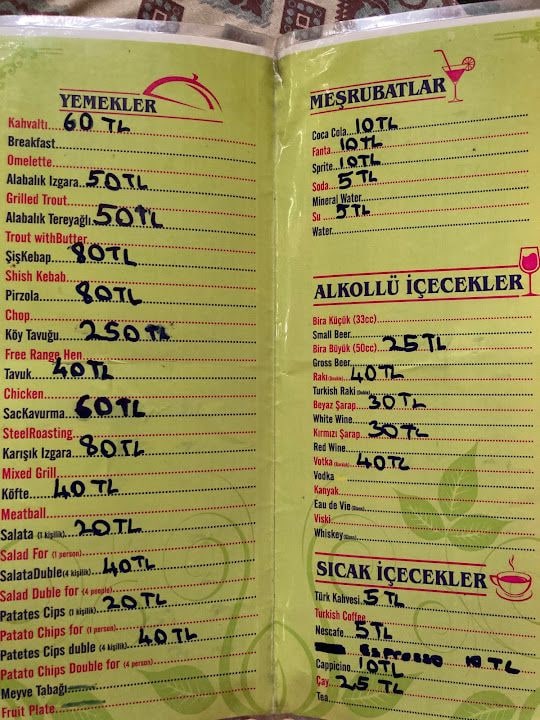 YEMEKLER
Kahvaltı...60 TL
Breakfast
Omelette
Alabalık Izgara 50 TL
Grilled Trout
Alabalık Tereyağlı 50 TL
Trout withButter
ŞişKebap 80 TL
Shish Kebab
Pirzola 80 TL
Chop
Köy Tavuğu 250 TL
Free Range Hen
Tavuk 40 TL
Chicken
SacKavurma 60 TL
SteelRoasting
Karışık Izgara 80 TL
Mixed Grill
Köfte 40 TL
Meatball
Salata (1 kişilik) 20 TL
Salad For (1 person)
SalataDuble (4 kişilik) 40 TL
Salad Duble for (4 people)
Patates Cips (1 kişilik) 20 TL
Patato Chips for (1 person)
Patetes Cips duble (4 kişilik) 40 TL
Patato Chips Double for (4 person)
Meyve Tabağı
Fruit Plate
MEŞRUBATLAR
Coca Cola 10 TL
Fanta 10 TL
Sprite 10 TL
Soda 5 TL
Mineral Water
Su 5 TL
Water
ALKOLLÜ İÇECEKLER
Bira Küçük (33cc)
Small Beer
Bira Büyük (50cc) 25 TL
Gross Beer
Rakı 40 TL
Turkish Raki
Beyaz Şarap 30 TL
White Wine
Kırmızı Şarap 30 TL
Red Wine
Votka 40 TL
Vodka
Kanyak
Eau de Vie
Viski
Whiskey
SICAK İÇECEKLER
Türk Kahvesi 5 TL
Turkish Coffee
Nescafe 5 TL
Espresso 10 TL
Cappicino 10 TL
Çay 2.5 TL
Tea